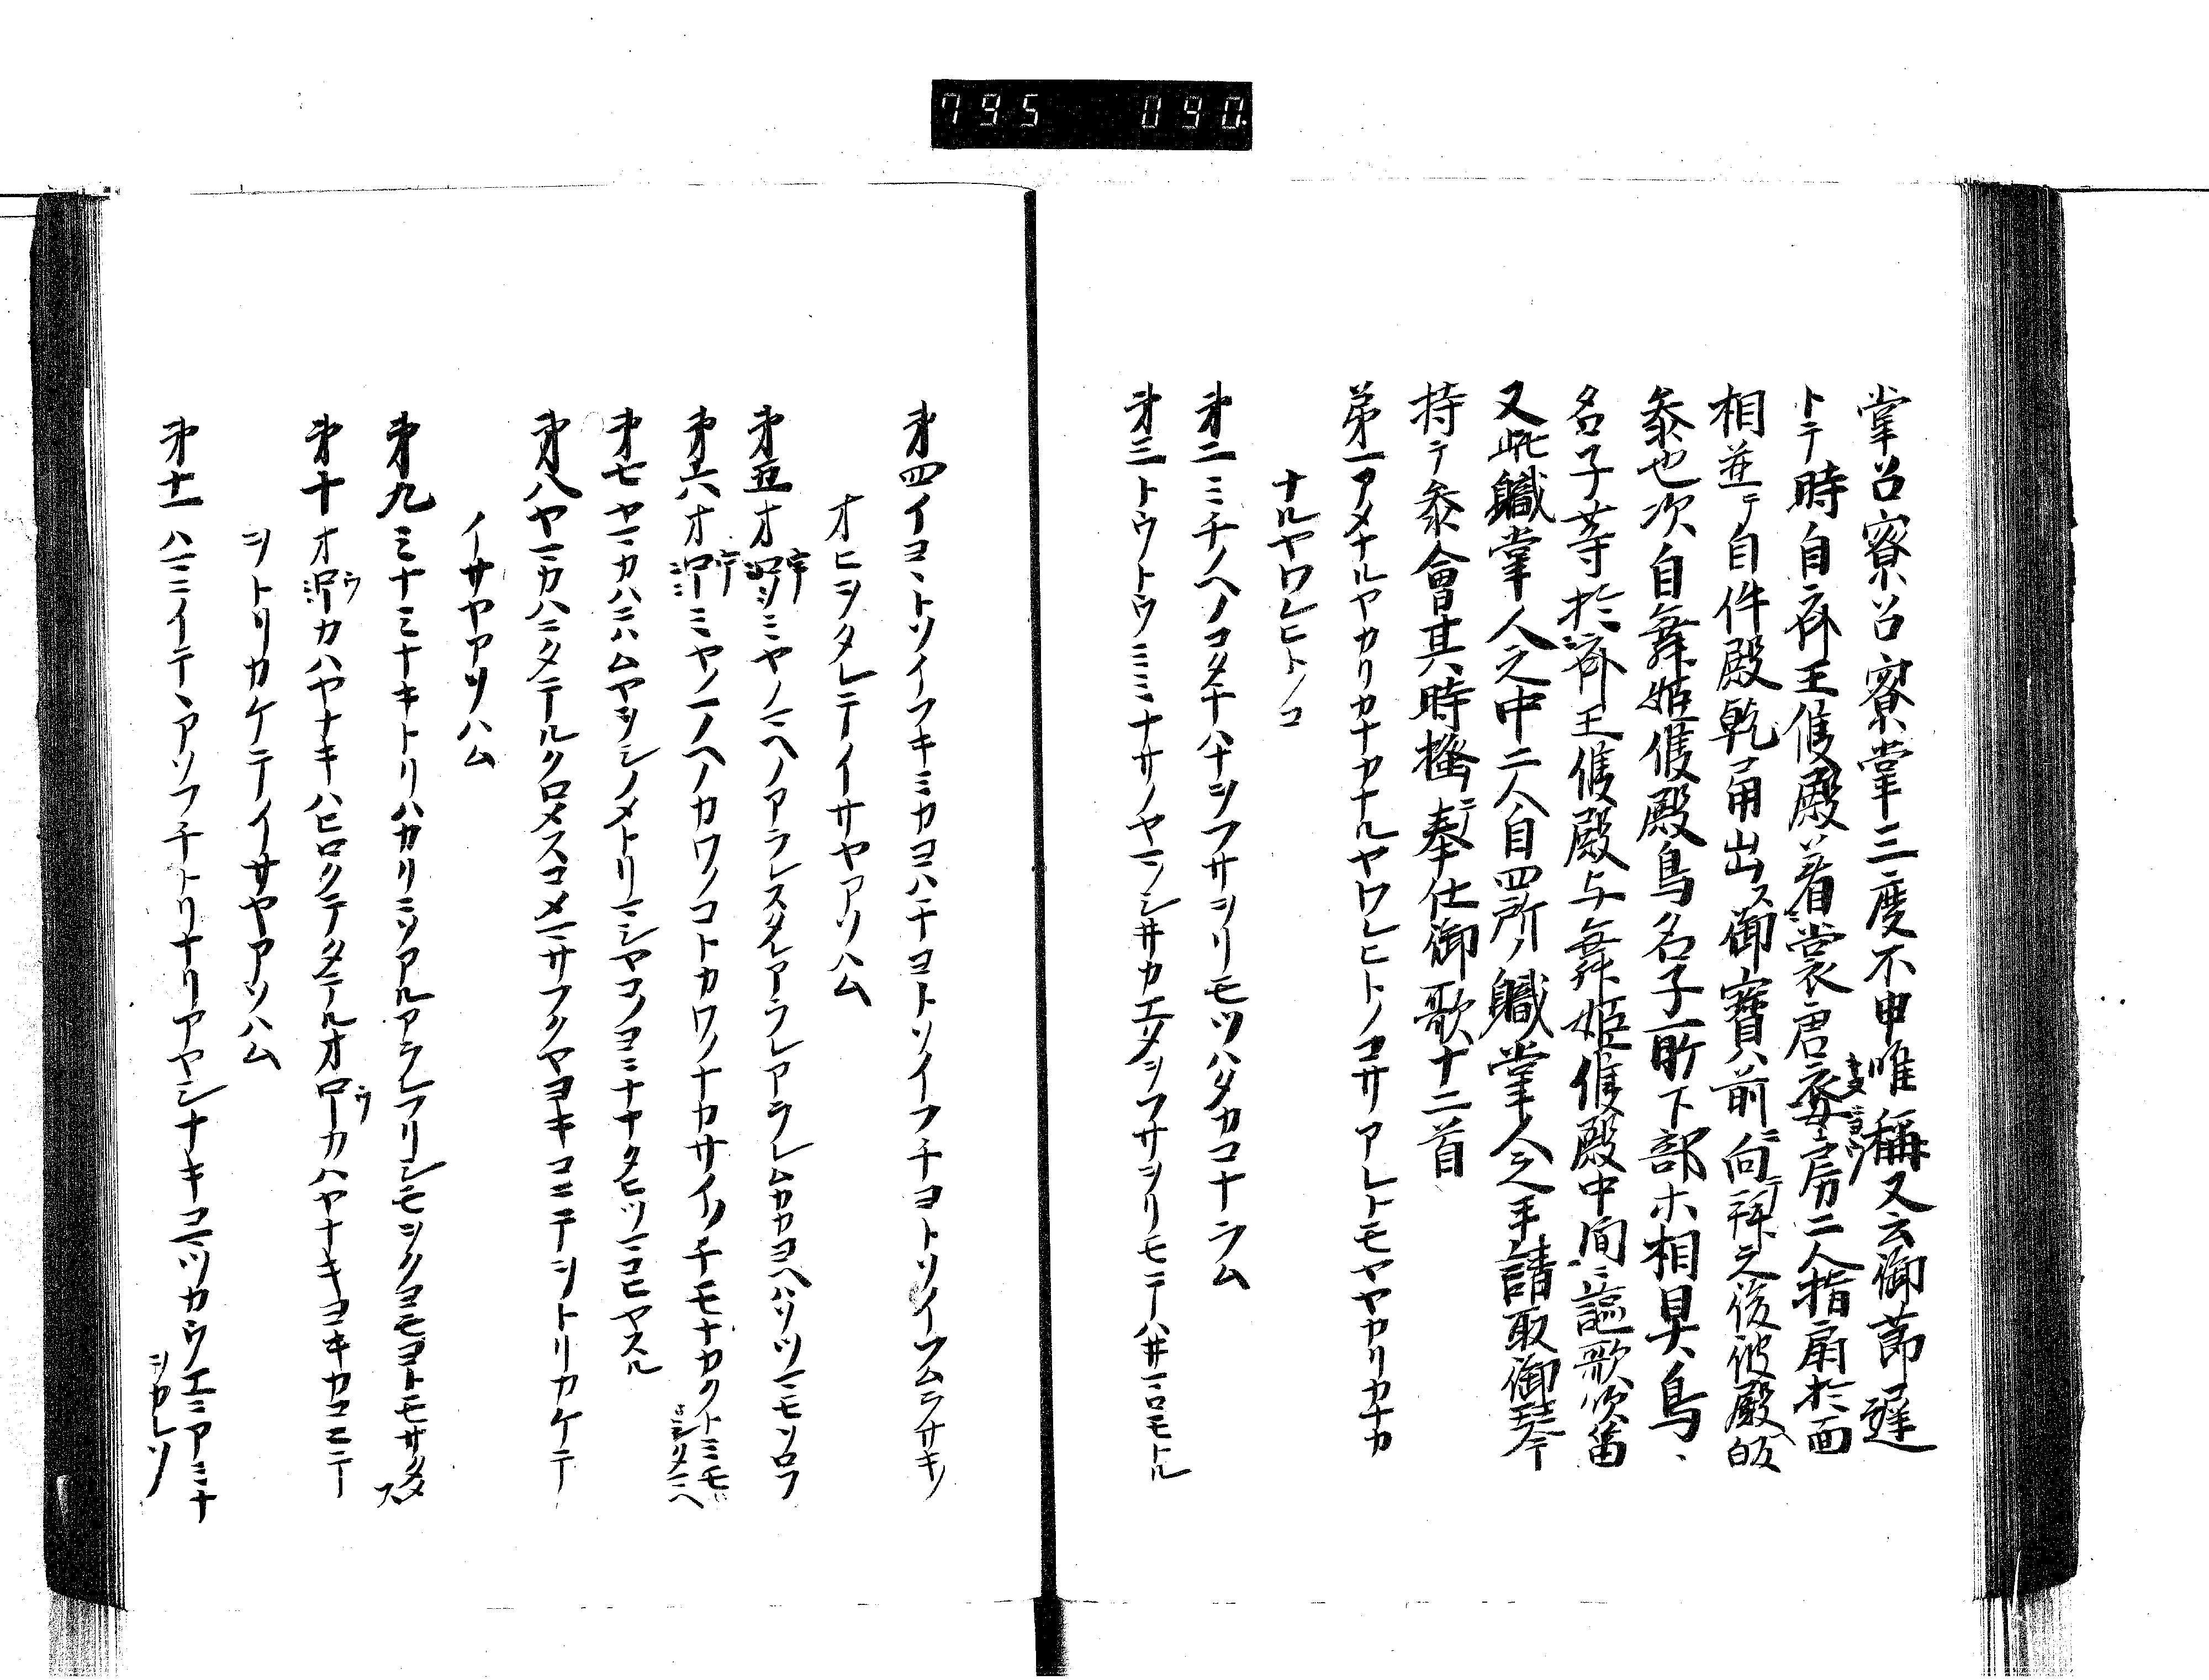 795 090
掌召寮召寮掌三度不申唯稱又云御莭遅
トテ時自斎王候殿着裳唐衣女房二人指扇於面
相並テ自件殿乾角出ス御寳前ニ向テ拜之後彼殿皈
参也次自舞姫候殿鳥名子所下部ホ相具鳥、
名子等於斎王候殿与舞姫候殿中間ニ謳歌吹笛
又此職掌人之中二人自四所ノ職掌人之手請取御琴
持テ参會其時搔テ奉仕御歌十二首
第一アメナルヤカリカナカナルヤワレヒトノコサアレトモヤヤカリカナカ
ナルヤワレヒトノコ
第二ミチノヘノコタチハナヲフサヲリモツハタカコナラム
第三トウトウミミナサノヤマノシヰカエタヲフサヲリモテハヰマロモトル
第四イヨヽトソイフキミカヨハチヨトソイフチヨトソイフムラサキノ
オヒヲタレテイサヤアソハム
第五オミヤノマヘノアラレスタレアラレアラレムカヨヘハソツマモソロフ
第六オミヤノマヘノカワノコトカワノナカサイノチモナカクトミモ
第七ヤマカハニハムヤヲシノメトリマシヤコノヨミナヤタヒツマコヒヤスル
第八ヤマカハニタテルクロメスコメマサフクヤヨキコニテヲトリカケテ
イサヤアソハム
第九ミナミナキトリハカリミソアルアラレフリシモヲクヨモヨトモサタメス
第十オカハヤナキハヒロクテタテルオカハヤナキヨキカコニテ
ヲトリカケテイサヤアソハム
第十一ハマニイテヽアソフチトリナリアヤシナキコマツカウエニアミナ
ヲカレソ